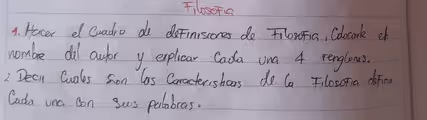 Filosofia
1. Hacer el Cuadro de definisiones de Filosofia, Colocarle el
nombre del autor y explicar Cada una 4 renglones.
2 Decir Cuales son las Caracteristicas de la Filosofia defina
Cada una Con sus palabras.